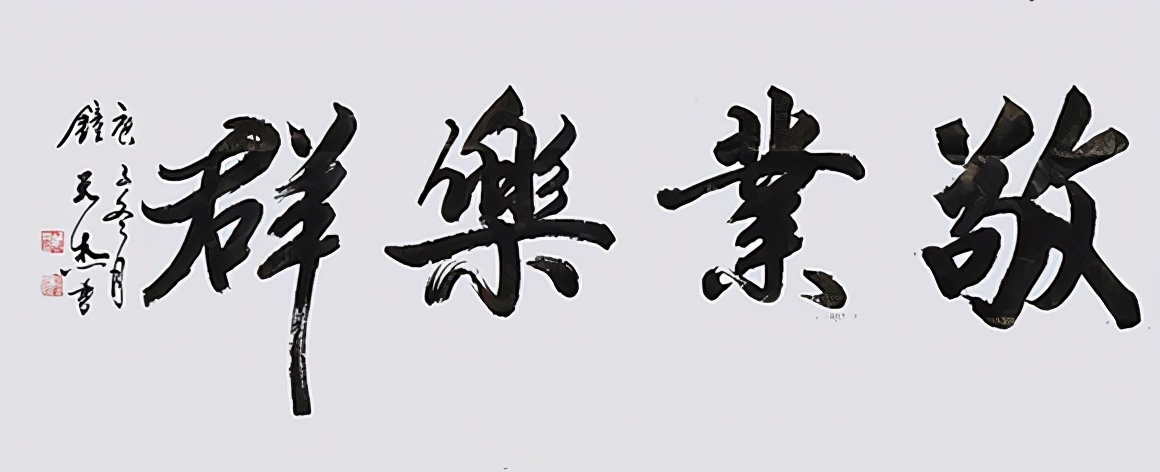 敬業樂群
庚子冬月
鐘天杰書